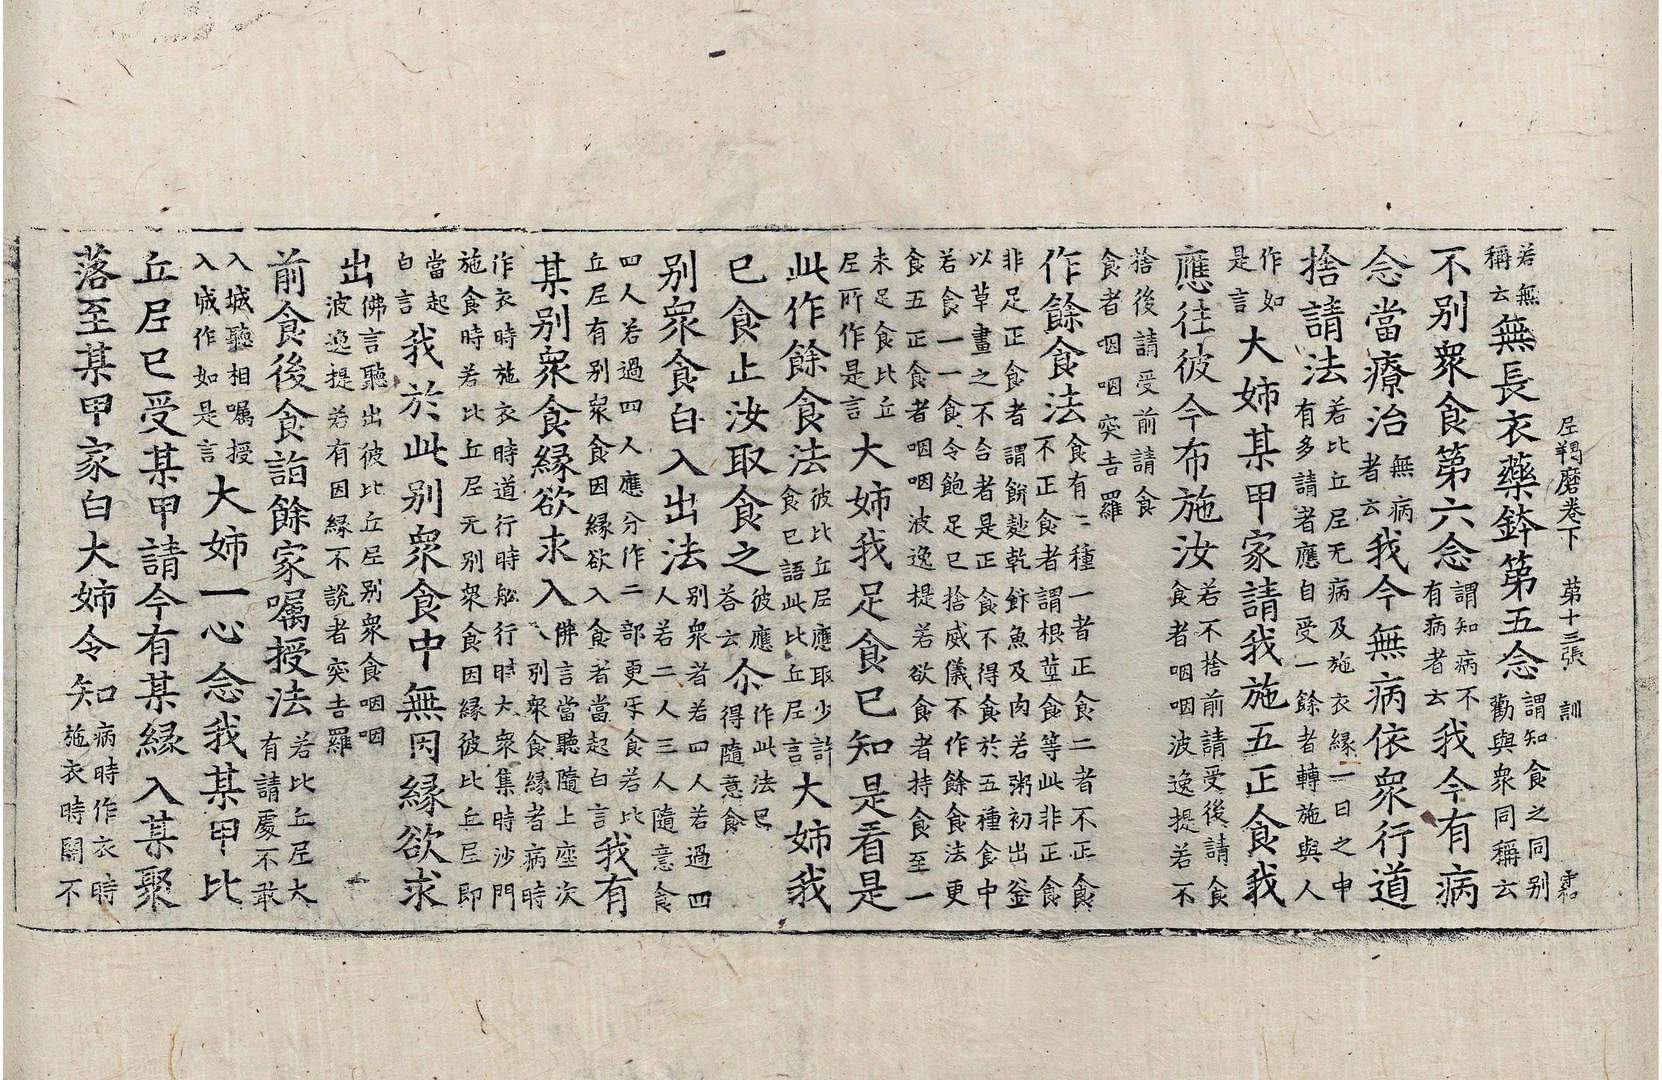 尼羯磨卷下 第十三張 訓
若無稱云無長衣藥鉢第五念謂知食之同别勸與衆同稱云
不别衆食第六念謂知病不有病者云我今有病
念當療治無病者云我今無病依衆行道
捨請法若比丘尼无病及施衣緣一日之中有多請者應自受一餘者轉施與人
作如是言大姉某甲家請我施五正食我
應往彼今布施汝若不捨前請受後請食食者咽咽波逸提若不
捨後請受前請食食者咽咽突吉羅
作餘食法食有二種一者正食二者不正食不正食者謂根莖食等此非正食
非足正食者謂飰麨乾飰魚及肉若粥初出釜以草畫之不合者是正食不得食於五種食中
若食一一食令飽足已捨威儀不作餘食法更食五正食者咽咽波逸提若欲食者持食至一
未足食比丘尼所作是言大姉我足食已知是看是
此作餘食法彼比丘尼應取少許食已語此比丘尼言大姉我
已食止汝取食之彼應荅云尒作此法已得隨意食
别衆食白入出法别衆者若四人若過四人若二人三人隨意食
四人若過四人應分作二部更互食若比丘尼有别衆食因緣欲入食者當起白言我有
某别衆食緣欲求入佛言當聽隨上座次入别衆食緣者病時
作衣時施衣時道行時舩行時大衆集時沙門施食時若比丘尼无别衆食因緣彼比丘尼即
當起白言我於此别衆食中無因緣欲求
出佛言聽出彼比丘尼别衆食咽咽波逸提若有因緣不說者突吉羅
前食後食詣餘家囑授法若比丘尼大有請處不敢
入城聽相囑授入城作如是言大姉一心念我某甲比
丘尼已受某甲請今有某緣入某聚
落至某甲家白大姉令知病時作衣時施衣時開不